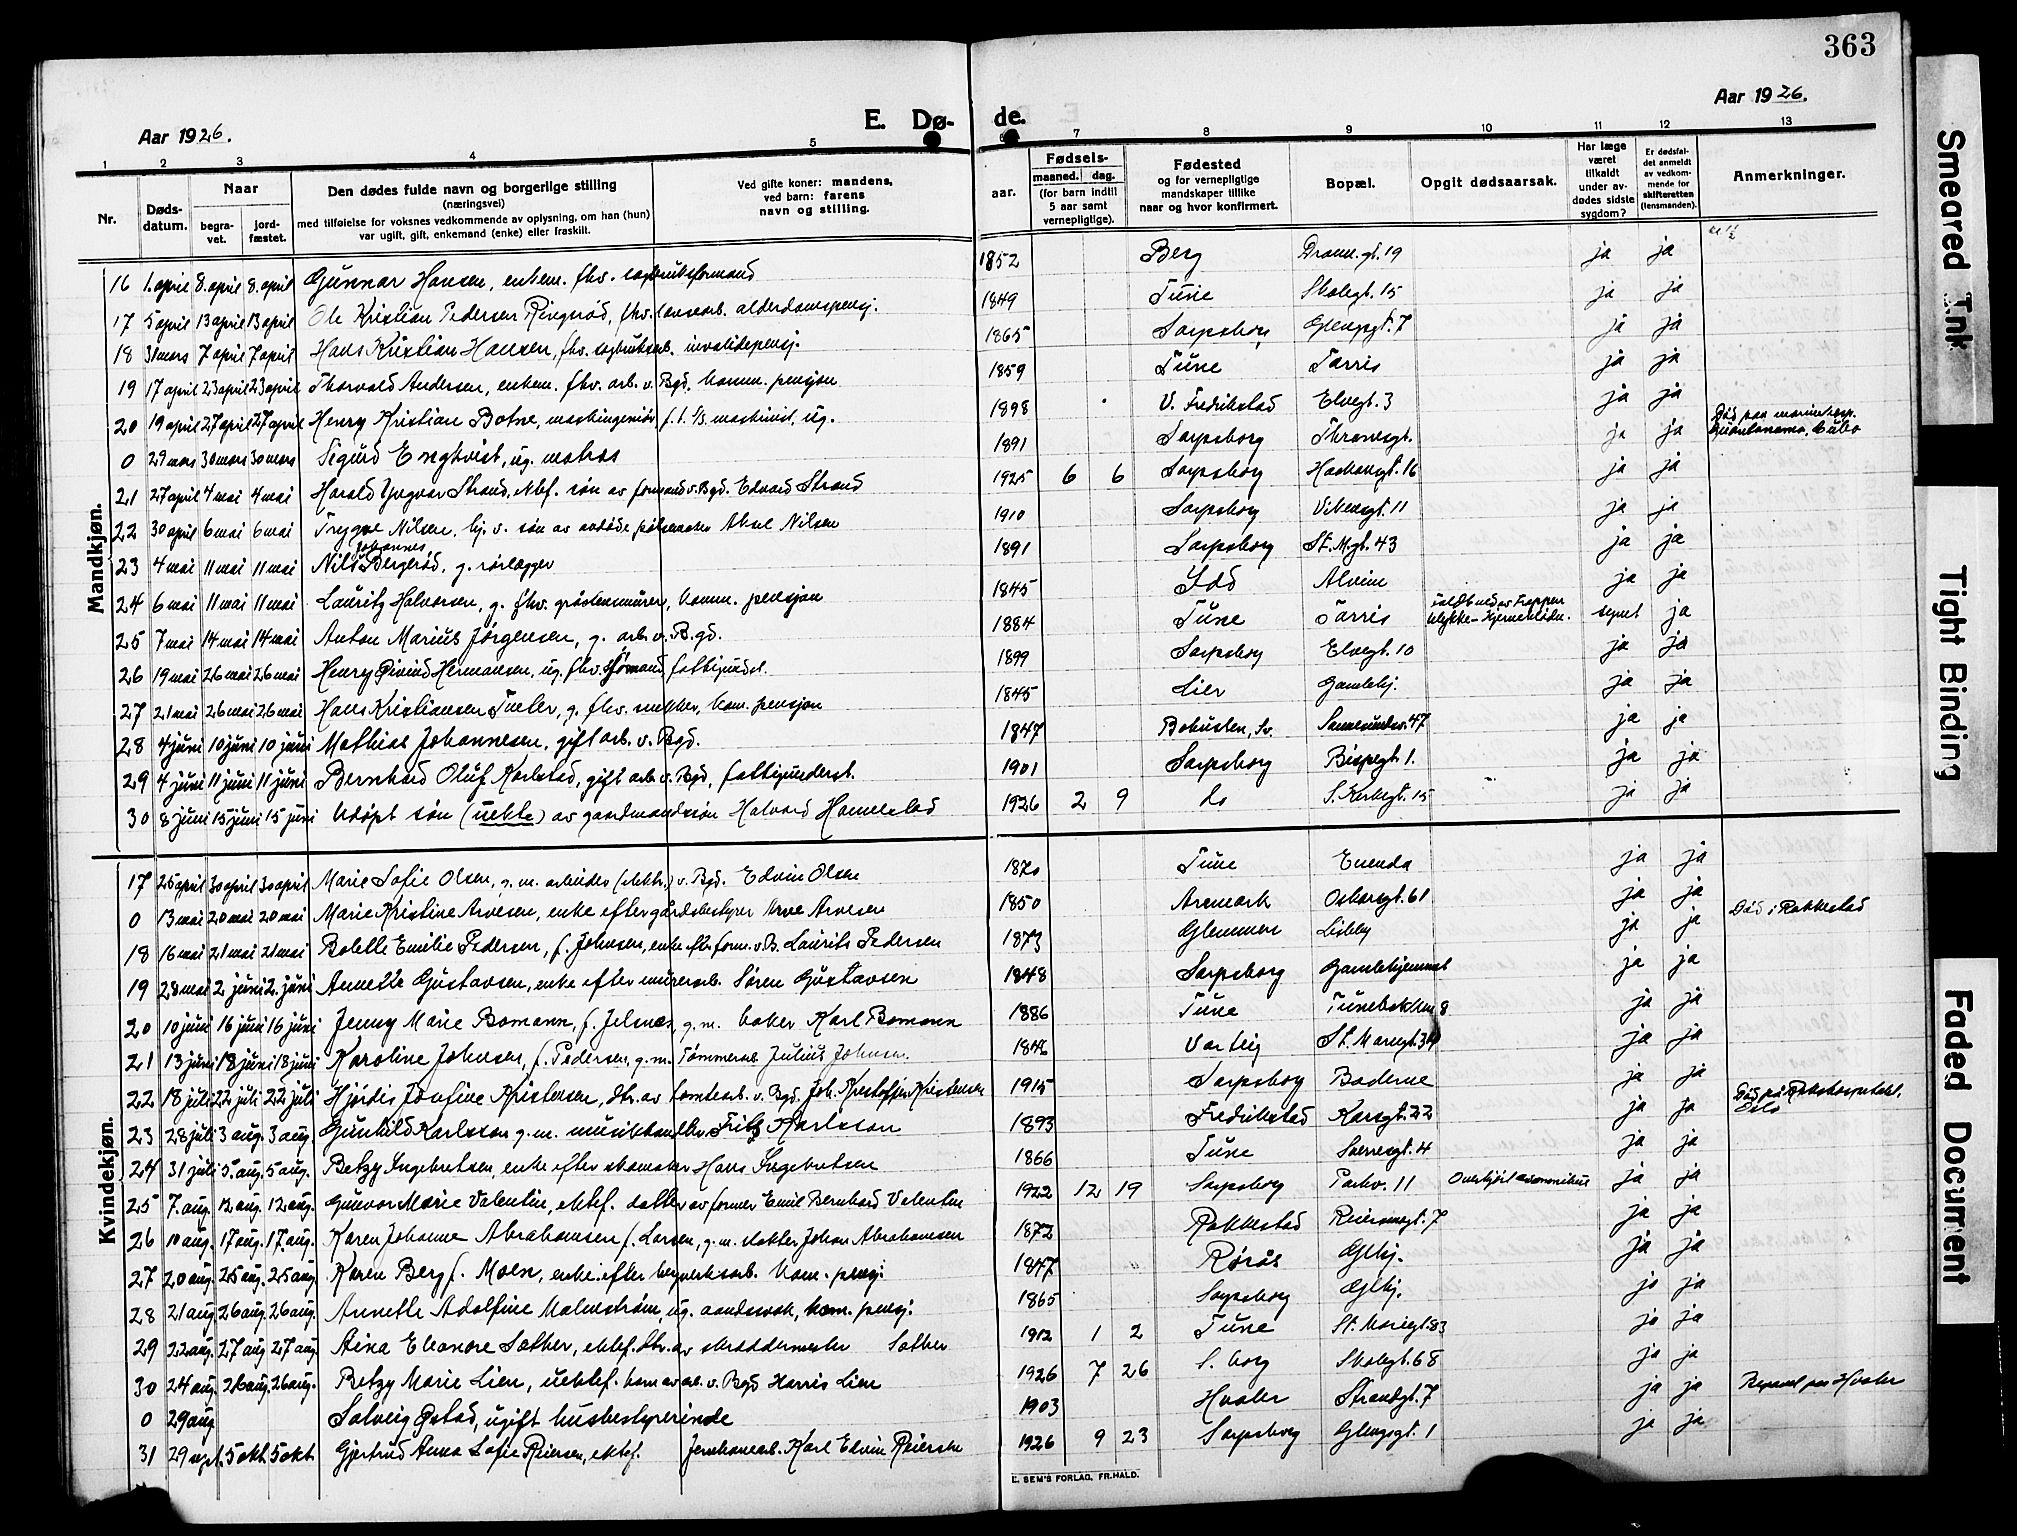 363
Aar 1926. E. Dø- de. Aar 1926.
1 2 3 4 5 7 8 9 10 11 12 13
Nr. Døds-datum. Naar begra-vet. jord-fæstet. Den dødes fulde navn og borgerlige stilling (næringsvei) med tilføielse for voksnes vedkommende av oplysning, om han (hun) var ugift, gift, enkemand (enke) eller fraskilt. Ved gifte koner: mandens, ved barn: farens navn og stilling. aar. Fødsels- maaned. dag. (for barn indtil 5 aar samt vernepligtige). Fødested og for vernepligtige mandskaper tillike naar og hvor konfirmert. Bopæl. Opgit dødsaarsak. Har læge været tilkaldt under av-dødes sidste sygdom? Er dødsfal-det anmeldt av vedkom-mende for skifteretten (lensmanden). Anmerkninger.
Mandkjøn.
16 1. april 8. april 8. april Gunnar Hansen, enkem. fhv. sagbruksformand 1852 Berg Dramm.gt. 19 ja ja
17 5 april 13 april 13 april Ole Kristian Pedersen Ringrød, fhv. alderdomspensj. 1849 Tune Skolegt. 15 ja ja
18 31 mars 7 april 7 april Hans Kristian Hansen, fhv. sagbruksarb. invalidepensj. 1865 Sarpsborg Glengsgt. 7 ja ja
19 17 april 23 april 23 april Thorvald Andersen, enkem. fhv. arb. v. Bgd. komm. pensjon 1859 Tune Tarris ja ja
20 19 april 27 april 27 april Henry Kristian Botne, maskingeniør f. t. maskinist, ug. 1898 V. Fredrikstad Elvegt. 3 ja ja
0 29 mars 30 mars 30 mars Sigurd Engkvist, ug. matros 1891 Sarpsborg Thranesgt. ja ja Død paa marinehosp. Guantanamo, Cuba
21 27 april 4 mai 4 mai Harald Yngvar Strand, ektef. søn av formand v. Bgd. Edvard Strand 1925 6 6 Sarpsborg Haakongt. 16 ja ja
22 30 april 6 mai 6 mai Trygve Nilsen, hj. v. søn av avdøde pølsemaker Aksel Nilsen 1910 Sarpsborg Vikensgt. 11 ja ja
23 4 mai 11 mai 11 mai Nils Johannes Bergerød, g. rørlægger 1891 Sarpsborg St. M.gt. 43 ja ja
24 6 mai 11 mai 11 mai Lauritz Halvorsen, g. fhv. gråstensmurer, komm. pensjon 1845 Idd Alvim ja ja
25 7 mai 14 mai 14 mai Anton Marius Jørgensen, g. arb. v. B.gd. 1884 Tune Tarris faldt ned av trappen ulykke - hjerneblødn. synet ja
26 19 mai 26 mai 26 mai Henry Øivind Hermansen, ug. fhv. sjømand fattigunderst. 1899 Sarpsborg Elvegt. 10 ja ja
27 21 mai 26 mai 26 mai Hans Kristiansen g. fhv. snekker, kom. pensjon 1845 Lier Gamlehj. ja ja
28 4 juni 10 juni 10 juni Mathias Johannesen, gift arb. v. Bgd. 1847 Bohuslen, Sv. Sannesundsv. 47 ja ja
29 4 juni 11 juni 11 juni Bernhard Oluf Karlstad, gift arb. v. Bgd, fattigunderst. 1901 Sarpsborg Bispegt. 1. ja ja
30 8 juni 15 juni 15 juni Udøpt søn (uekte) av gaardmandssøn Halvard Hannestad 1926 2 9 do S. Kirkegt. 15 ja ja
Kvindekjøn.
17 25 april 30 april 30 april Marie Sofie Olsen, g. m. arbeider (elektr.) v. Bgd. Edvin Olsen 1870 Tune Enenda ja ja
0 13 mai 20 mai 20 mai Marie Kristine Arvesen, enke efter gårdsbestyrer Arve Arvesen 1850 Aremark Oskarsgt. 61 ja ja Død i Rakkestad
18 16 mai 21 mai 21 mai Bolette Emilie Pedersen, f. Johnsen, enke eftr. form. v. B. Laurits Pedersen 1873 Glemmen Lisleby ja ja
19 28 mai 2 juni 2. juni Annette Gustavsen, enke efter murerarb. Søren Gustavsen 1848 Sarpsborg Gamlehjemmet ja ja
20 10 juni 16 juni 16 juni Jenny Marie Bomann, f. Jelnæs, g. m. baker Karl Bomann 1886 Tune Tunebakken 8 ja ja
21 13 juni 18 juni 18 juni Karoline Johnsen, f. Pedersen, g. m. Tømmerarb Julius Johnsen 1846 Varteig St. Mariegt. 34 ja ja
22 18 juli 22 juli 22 juli Hjørdis Josefine Kristensen, dtr. av tomtearb. v. Bgd. Joh. Kristoffer Kristensen 1915 Sarpsborg Baderne ja ja
23 28 juli 3 aug. 3 aug. Gunhild Karlsson g. m. musikhandler Fritz Karlsson 1893 Fredrikstad Korsgt. 22 ja ja Død på Rikshospitalet, Oslo
24 31 juli 5. aug. 5 aug. Betzy Ingebretsen, enke efter skomaker Hans Ingebretsen 1866 Tune Sverresgt. 4 ja ja
25 7. aug. 12 aug. 12 aug. Gunvor Marie Valentin, ektef. datter av former Emil Bernhard Valentin 1922 12 19 Sarpsborg Parkv. 11 ja ja
26 10 aug. 17 aug. 17. aug. Karen Johanne Abrahamsen f. Larsen, g. m. slakter Johan Abrahamsen 1872 Rakkestad Reiersensgt. 7 ja ja
27 20 aug. 25 aug. 25 aug. Karen Berg f. Moen, enke efter bergverksarb. kom. pensj. 1847 Røros Glhj. ja ja
28 21 aug 26 aug 26 aug. Annette Adolfine Malmstrøm, ug. aandssvak, kom. pensj. 1865 Sarpsborg Glhj. ja ja
29 22 aug. 27 aug 27 aug. Aina Eleonore Sæther, ektef. dtr. av skræddermester Sæther 1912 1 2 Tune St. Mariegt. 83 ja ja
30 24 aug. 26 aug. 26 aug. Betzy Marie Lien, uektef. barn av arb. v. Bgd Harris Lien 1926 7 26 S. borg Skolegt. 68 ja ja
0 29 aug Solveig Østad, ugift husbestyrerinde 1903 Hvaler Strandgt. 7 ja ja Begravet paa Hvaler
31 29 sept. 5 okt. 5 okt. Gjertrud Anna Sofie Reiersen, ektef. Jernbanearb. Karl Edvin Reiersen 1926 9 23 Sarpsborg Glengsgt. 1 ja ja
E. SEM'S FORLAG, FR.HALD.
Smeared Ink
Tight Binding
Faded Document